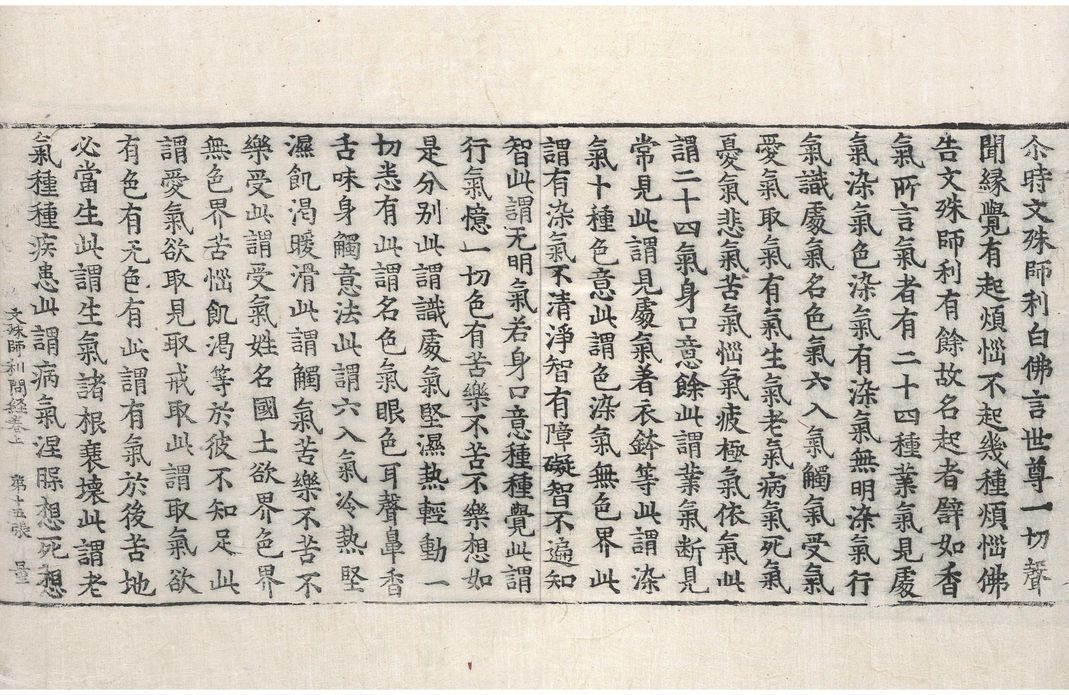 尒時文殊師利白佛言世尊一切聲
聞縁覺有起煩惱不起幾種煩惱佛
告文殊師利有餘故名起者譬如香
氣所言氣者有二十四種業氣見處
氣染氣色染氣有染氣無明染氣行
氣識處氣名色氣六入氣觸氣受氣
愛氣取氣有氣生氣老氣病氣死氣
憂氣悲氣苦氣惱氣疲極氣依氣此
謂二十四氣身口意餘此謂業氣断見
常見此謂見處氣着衣鉢等此謂染
氣十種色意此謂色染氣無色界此
謂有染氣不清淨智有障礙智不遍知
智此謂无明氣若身口意種種覺此謂
行氣憶一切色有苦樂不苦不樂想如
是分别此謂識處氣堅濕熱輕動一
切恙有此謂名色氣眼色耳聲鼻香
舌味身觸意法此謂六入氣冷熱堅
濕飢渴暖滑此謂觸氣苦樂不苦不
樂受此謂受氣姓名國土欲界色界
無色界苦惱飢渴等於彼不知足此
謂愛氣欲取見取戒取此謂取氣欲
有色有无色有此謂有氣於後苦地
必當生此謂生氣諸根衰壞此謂老
氣種種疾患此謂病氣涅脲想死想
文殊師利問経卷上 第十五張 量